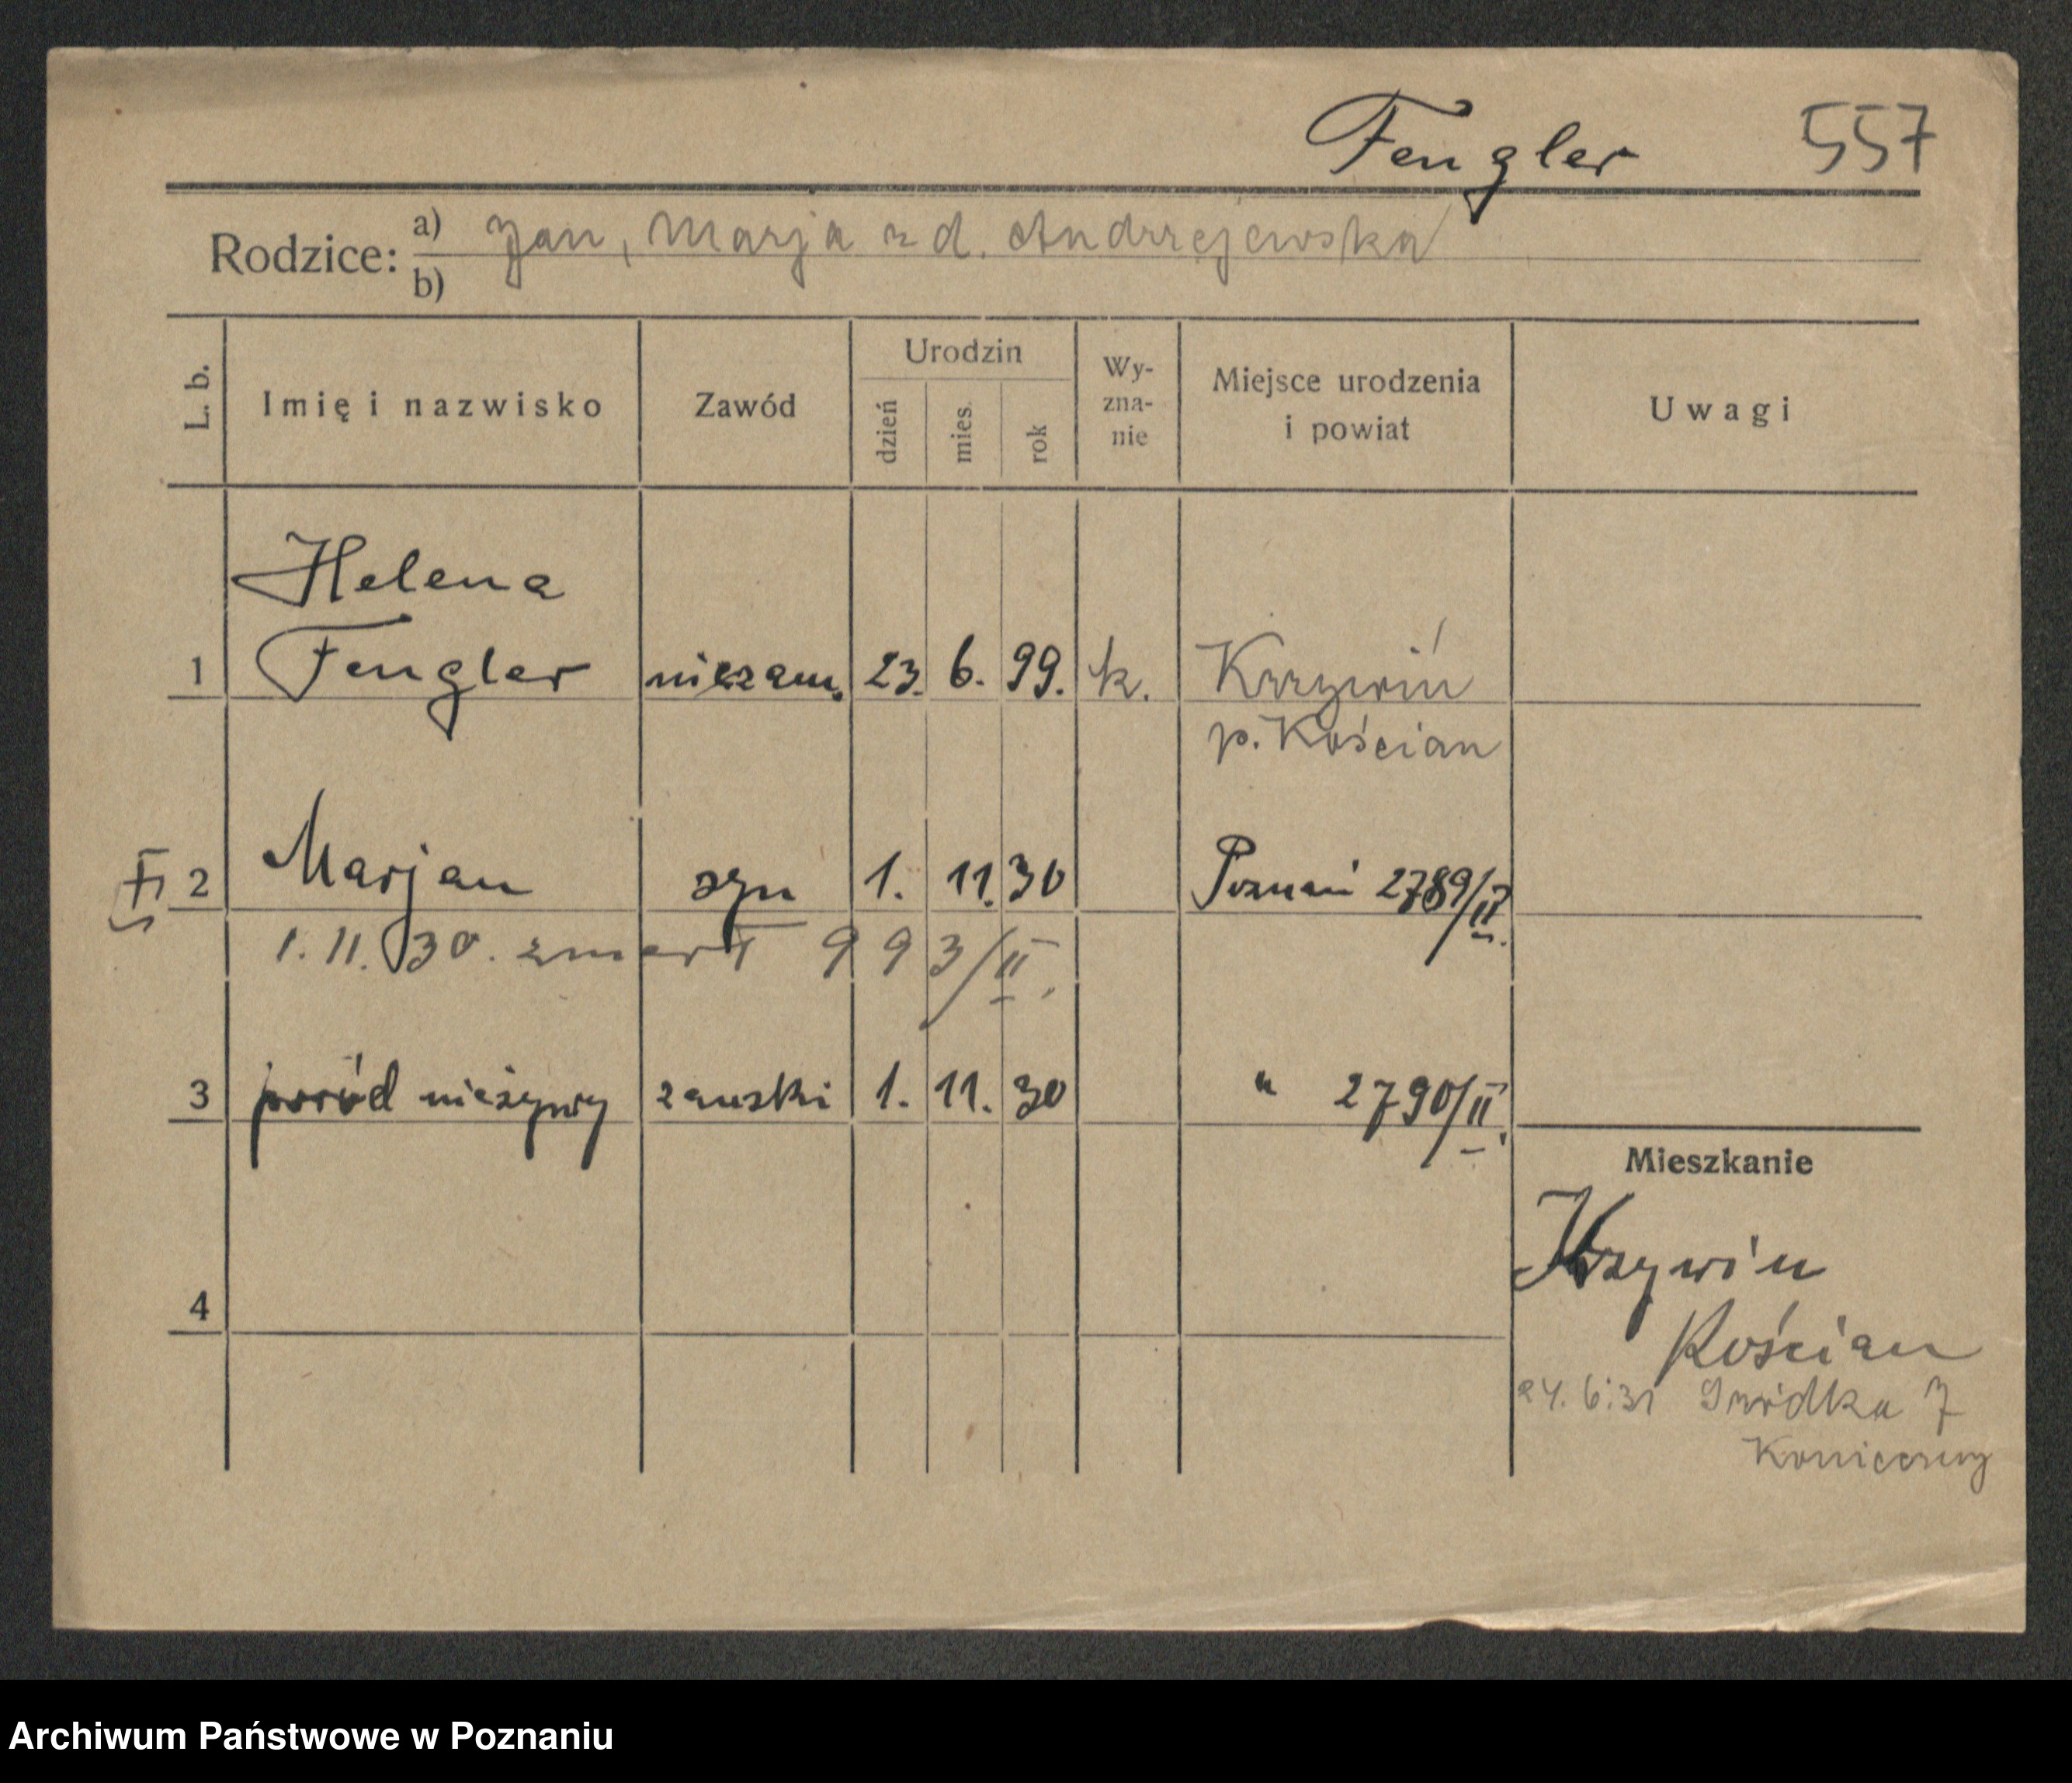 Fengler 557
Rodzice: a) Jan, Marja z d. Andrzejewska
b)
L. b. Imię i nazwisko Zawód Urodzin dzień mies. rok Wy-zna-nie Miejsce urodzenia i powiat Uwagi
Helena
1 Fengler niezam. 23. 6. 99. k. Krzywiń
p. Kościan
2 Marjan syn 1. 11. 30 Poznań 2789/II.
1. 11. 30. zmarł 993/II.
3 poród nieżywy żeński 1. 11. 30 " 2790/II.
Mieszkanie
Krzywiń
4
Kościan
24. 6. 31 7
Konieczny
Archiwum Państwowe w Poznaniu